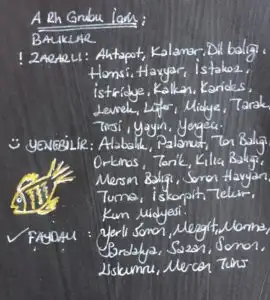 A Rh Grubu İçin:
BALIKLAR
! ZARARLI: Ahtapot, Kalamar, Dil balığı,
Hamsi, Havyar, İstakoz,
İstiridye, Kalkan, Karides,
Levrek, Lüfer, Midye, Tarak
Tirsi, Yayın, Yengeç.
☺ YENEBİLİR: Alabalık, Palamut, Ton Balığı
Orkinos, Torik, Kılıç Balığı,
Mersin Balığı, Somon Havyarı,
Turna, İskorpit, Tekir,
Kum Midyesi.
✓ FAYDALI: Yerli Somon, Mezgit, Morina,
Sardalya, Sazan, Somon,
Uskumru, Mercan